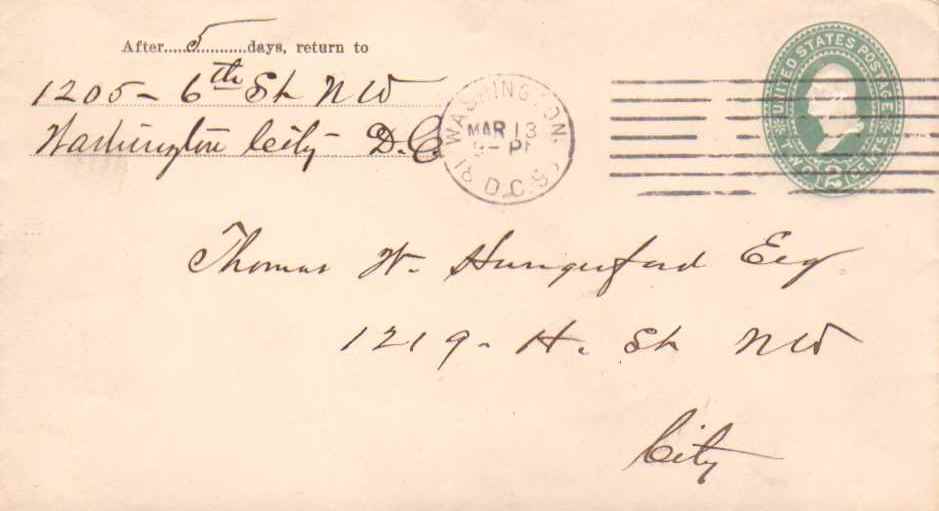 After.....5..........days, return to
1205 - 6th St NW
Washington City - D.C.
WASHINGTON,
MAR 13
D.C.
UNITED STATES POSTAGE
TWO 2 CENTS
Thomas W. Hungerford Esq
1219 - H. St NW
City